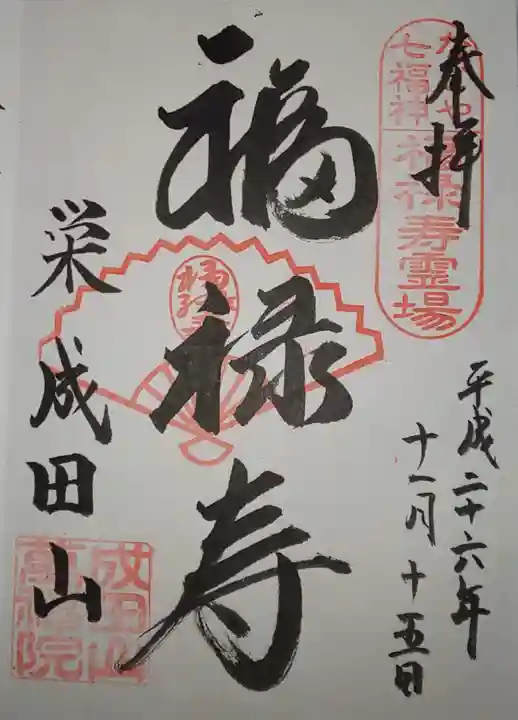 奉拝
七福神
福禄寿霊場
平成二十六年
十一月十五日
福禄寿
福禄寿
栄成田山
成田山
萬福院